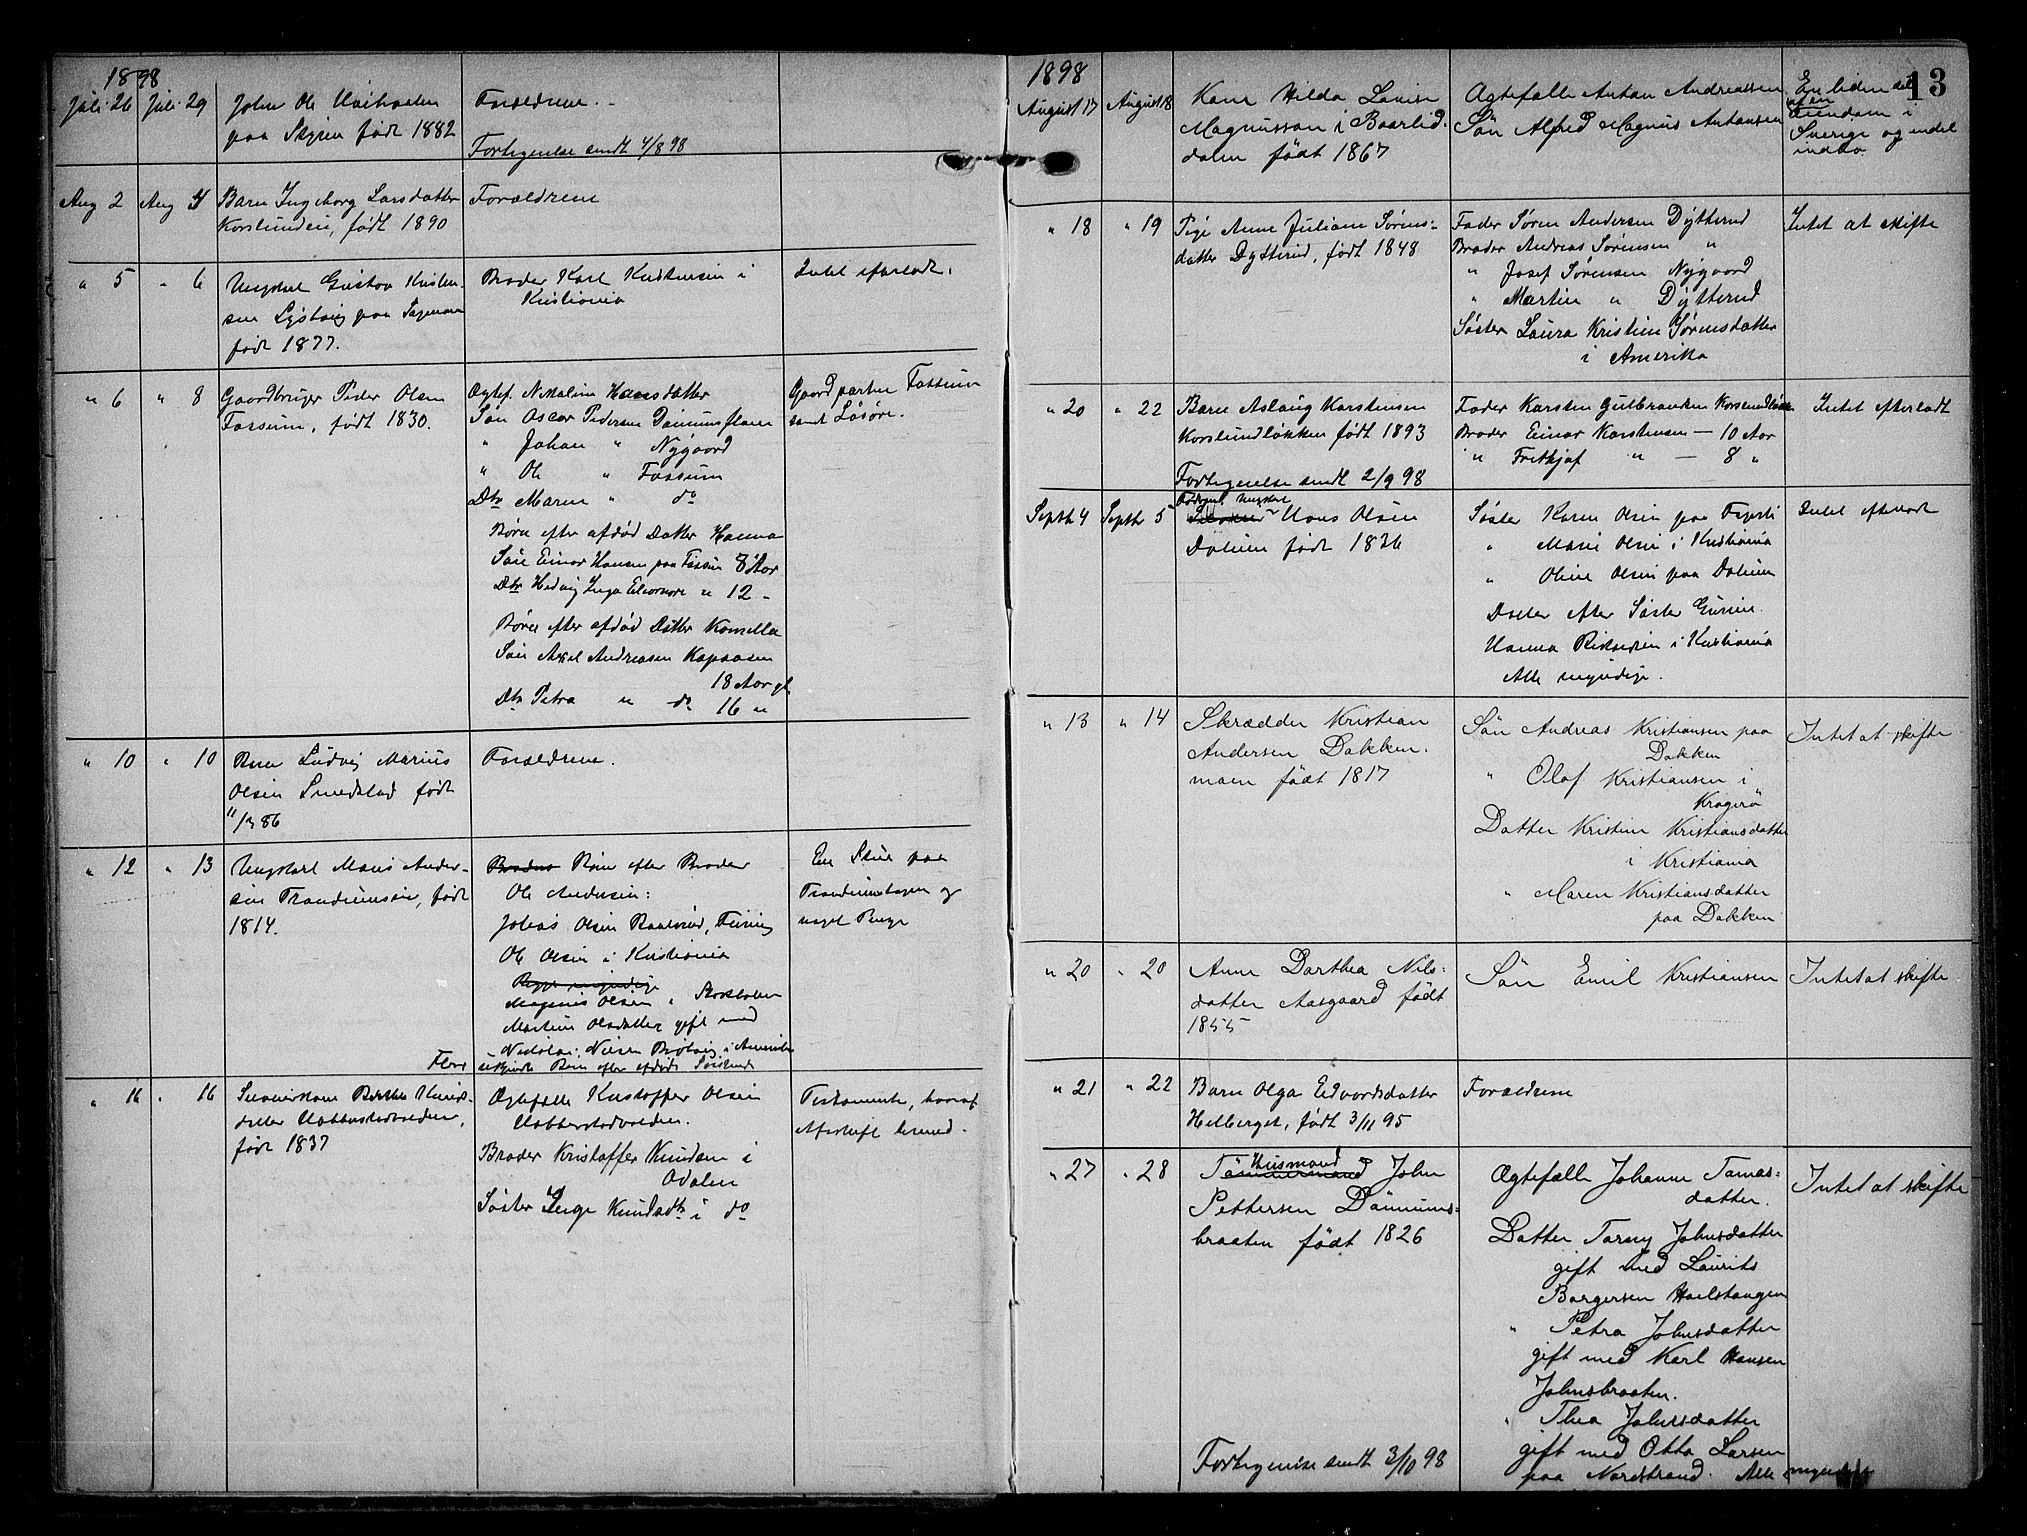 1898
Juli 26 Juli 29 John Ole
paa født 1882
Forældrene.
Fortegnelse sendt 4/8 98
Aug 2 Aug 4 Barn Ingeborg Larsdatter
Korslundeie, født 1890
Forældrene
" 5 " 6 Ungkarl Gustav Kristen-
sen paa
født 1877.
Broder Karl Kristensen i
Kristiania
Intet efterladt.
" 6 " 8 Gaardbruger Peder Olsen
Fossum, født 1830.
Ægtef. Nikoline Hansdatter
Søn Oscar Pedersen
" Johan " Nygaard
" Ole " Fossum
Dtr Maren " do
Børn efter afdød Datter Hanna
Søn Einar Hansen paa Fossum 8 Aar
Dtr Hedvig Inga Eleonore " 12 "
Børn efter afdød Datter Kornella
Søn Axel Andreasen Kopaasen
18 Aar gl.
Dtr Petra " do 16 "
Gaardparten Fossum
samt Løsøre.
" 10 " 10 Barn Ludvig Marius
Olsen Smedstad født
11/3 86
Forældrene.
" 12 " 13 Ungkarl Mons Ander-
sen født
1814.
Børn efter Broder
Ole Andersen:
Johas Olsen
Ole Olsen i Kristiania
Magnus Olsen i Stockholm
Martine Olsdatter gift med
Nikolai Nilsen i Amerika
Flere ukjendte Børn efter afdøde Søskende
En Stue paa
og
noget Penge
" 16 " 16 Knuds-
datter
født 1837
Ægtefælle Kristoffer Olsen
Broder Kristoffer Knudsen i
Odalen
Søster Inge Knudsdtr i do
Testamente, hvoraf
Afskrift
1898 13
August 17 August 18 Kone Hilda Lovise
Magnusson i Baarlid-
dalen født 1867
Ægtefælle Anton Andreassen
Søn Alfred Magnus Antonsen
En liden del
af en
Eiendom i
Sverige og endel
indbo
" 18 " 19 Pige Anne Juliane Sørens-
datter Dytterud, født 1848
Fader Søren Andersen Dytterud
Broder Andreas Sørensen "
" Josef Sørensen Nygaard
" Martin " Dytterud
Søster Laura Kristine Sørensdatter
i Amerika
Intet at skifte
" 20 " 22 Barn Aslaug Karstensen
Korslundløkken født 1893
Fortegnelse sendt 2/9 98
Fader Karsten Gulbrandsen Korslundløkken
Broder Einar Karstensen — 10 Aar
" Frithjof " — 8 "
Intet efterladt
Septbr 4 Septbr 5 Ungkarl
Hans Olsen
Dølien født 1836
Søster Karen Olsen paa
" Marie Olsen i Kristiania
" Oline Olsen paa Dølien
Datter efter Søster Gurine.
Hanna i Kristiania
Alle myndige.
Intet efterladt
" 13 " 14 Skrædder Kristian
Andersen Dakken-
moen født 1817
Søn Andreas Kristiansen paa
Dakken
" Olaf Kristiansen i
Kragerø
Datter Kristine Kristiansdatter
i Kristiania
" Maren Kristiansdatter
paa Dakken
Intet at skifte
" 20 " 20 Anne Dorthea Nils-
datter Aasgaard født
1855
Søn Emil Kristiansen
Intet at skifte
" 21 " 22 Barn Olga Edvardsdatter
Helberget, født 3/11 95
Forældrene
" 27 " 28 Husmand
Tømmermand John
Pettersen Dømmums-
braaten født 1826
Fortegnelse sendt 3/10 98
Ægtefælle Johanne Tomas-
datter.
Datter Torny Johnsdatter
gift med Laurits
Borgersen Hoelstangen
" Petra Johnsdatter
gift med Karl Hansen
Johnsbraaten.
" Thea Johnsdatter
gift med Otto Larsen
paa Nordstrand. Alle myndige
Intet at skifte